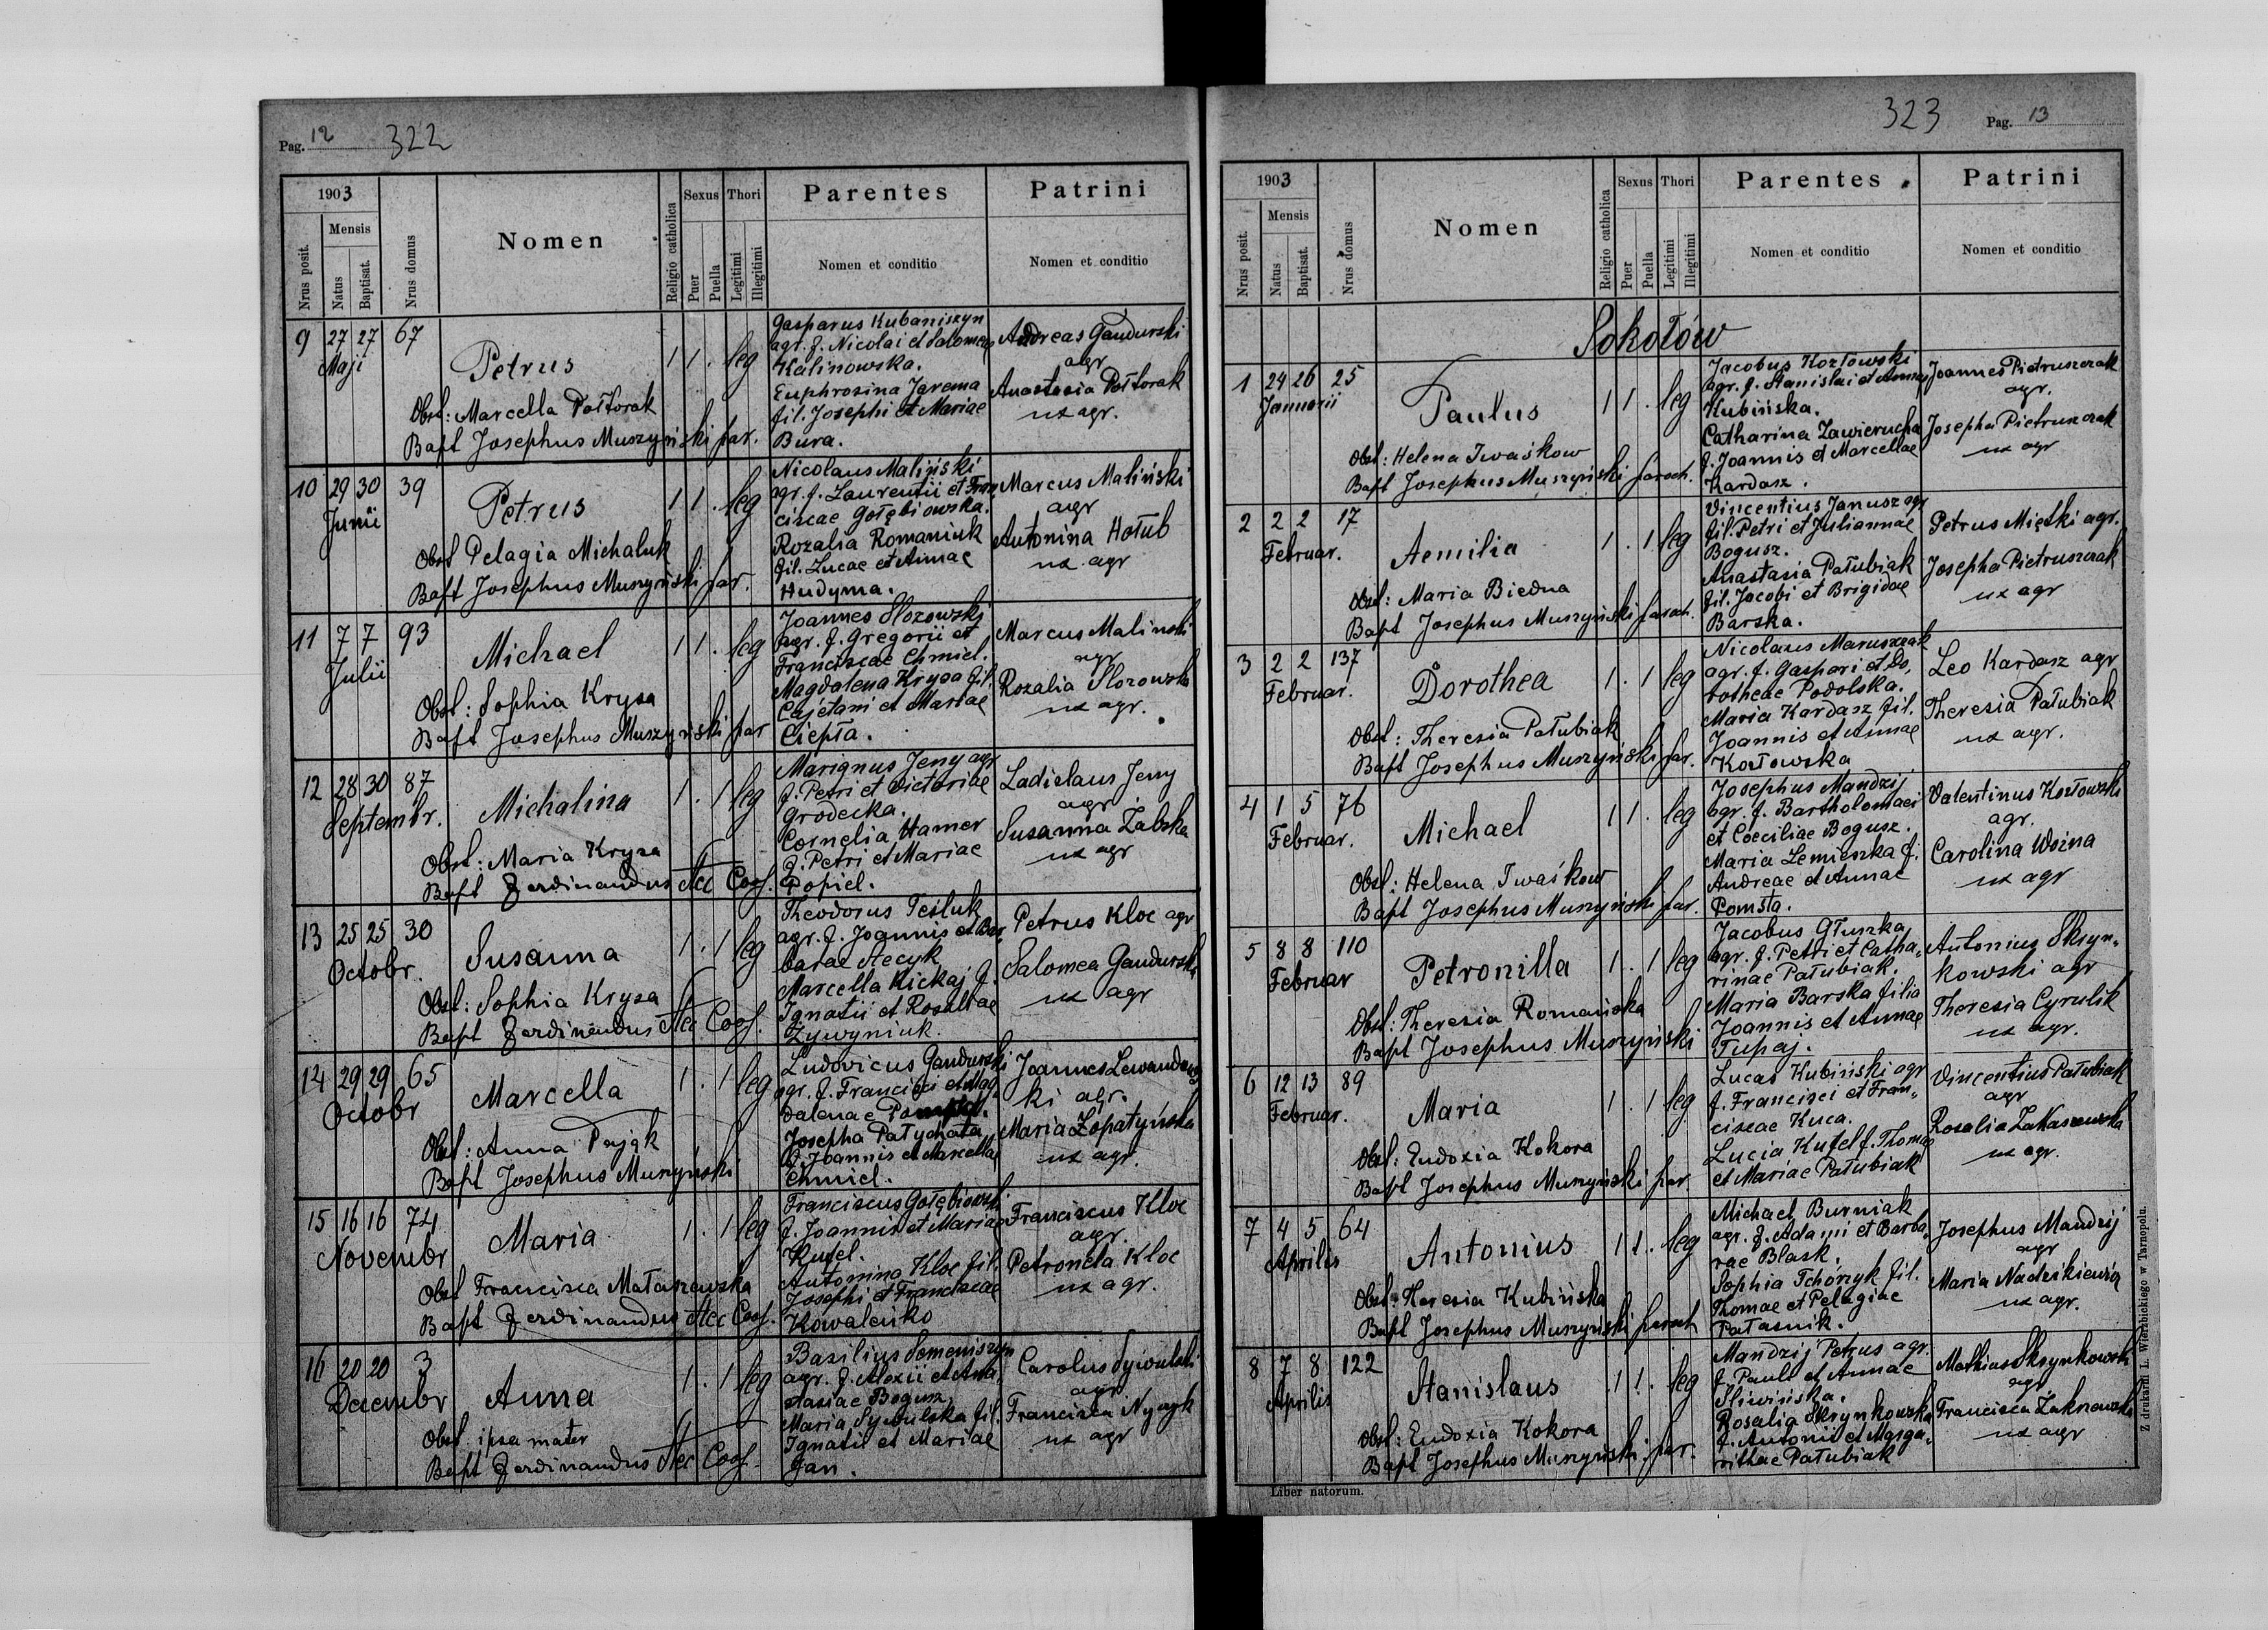 Pag. 12 322
1903
Nrus posit.
Mensis
Natus
Baptisat.
Nrus domus
Nomen
Religio catholica
Sexus
Puer
Puella
Thori
Legitimi
Illegitimi
Parentes
Nomen et conditio
Patrini
Nomen et conditio
9 27 27 67
Maji
Petrus
1 1 . leg
Obst: Marcella Półtorak
Bapt Josephus Muszyński par.
Gasparus Kubaniszyn
agr. f. Nicolai et Salomeae
Kalinowska.
Euphrosina Jarema
fil. Josephi et Mariae
Bura.
Andreas Gandurski
agr
Anastasia Półtorak
ux agr.
10 29 30 39
Junii
Petrus
1 1 . leg
Obst Pelagia Michaluk
Bapt Josephus Muszyński par.
Nicolaus Maliński
agr. f. Laurentii et Fran
ciscae Gołębiowska.
Rozalia Romaniuk
fil. Lucae et Annae
Hudyma.
Marcus Maliński
agr
Antonina Hołub
ux agr
11 7 7 93
Julii
Michael
1 1 . leg
Obst: Sophia Krysa
Bapt Josephus Muszyński par
Joannes Slozowski
agr. f. Gregorii et
Franciscae Chmiel.
Magdalena Krysa fil.
Cajetani et Mariae
Ciepła.
Marcus Malinski
agr
Rozalia Slozowska
ux agr.
12 28 30 87
Septembr.
Michalina
1 . 1 leg
Obst: Maria Krysa
Bapt Ferdinandus Coop.
Marignus Jeny agr
f. Petri et Victoriae
Grodecka.
Cornelia Hamer
f. Petri et Mariae
Popiel.
Ladislaus Jeny
agr
Susanna Żabska
ux agr
13 25 25 30
Octobr.
Susanna
1 . 1 leg
Obst: Sophia Krysa
Bapt Ferdinandus Coop.
Theodorus Tesluk
agr. f. Joannis et Bar,
barae Stecyk
Marcella Kickaj f.
Ignatii et Rosaliae
Zywyniuk.
Petrus Kloc agr
Salomea Gandurski
ux agr
14 29 29 65
Octobr
Marcella
1 . 1 leg
Obst: Anna Pająk
Bapt Josephus Muszyński
Ludovicus Gandurski
agr. f. Francisci et Mag
dalenae
Josepha Patychata
f. Joannis et Marcellae
Chmiel.
Joannes Lewandows
ki agr.
Maria Łopatyńska
ux agr.
15 16 16 74
Novembr
Maria
1 . 1 leg
Obst Francisca Mataszewska
Bapt Ferdinandus Coop.
Franciscus Gołębiowski
f. Joannis et Mariae
Kufel.
Antonina Kloc fil.
Josephi et Franciscae
Kowalenko
Franciscus Kloc
agr.
Petronela Kloc
ux agr.
16 20 20 3
Decembr
Anna
1 . 1 leg
Obst. ipsa mater
Bapt Ferdinandus Coop.
Basilius Semeniszyn
agr. f. Alexii et Ana,
stasiae Bogusz
Maria Sywulska fil.
Ignatii et Mariae
Jan.
Carolus Sywulski
agr
Francisca Nyczyk
ux agr
323 Pag. 13
1903
Nrus posit.
Mensis
Natus
Baptisat.
Nrus domus
Nomen
Religio catholica
Sexus
Puer
Puella
Thori
Legitimi
Illegitimi
Parentes
Nomen et conditio
Patrini
Nomen et conditio
Sokołów
1 24 26 25
Januarii
Paulus
1 1 . leg
Obst: Helena Iwaśkow
Bapt Josephus Muszyński paroch.
Jacobus Kozłowski
agr. f. Stanislai et Annae
Kubińska.
Catharina Zawierucha
f. Joannis et Marcellae
Kardasz.
Joannes Pietruszczak
agr.
Josepha Pietruszczak
ux agr
2 2 2 17
Februar.
Aemilia
1 . 1 leg
Obst: Maria Biedna
Bapt Josephus Muszyński paroch.
Vincentius Janusz agr
fil. Petri et Juliannae
Bogusz.
Anastasia Pałubiak
fil. Jacobi et Brigidae
Barska.
Petrus Miętki agr.
Josepha Pietruszczak
ux agr
3 2 2 137
Februar.
Dorothea
1 . 1 leg
Obst: Theresia Pałubiak
Bapt Josephus Muszyński par.
Nicolaus Maruszczak
agr. f. Gaspari et Do,
rotheae Podolska.
Maria Kardasz fil.
Joannis et Annae
Kozłowska
Leo Kardasz agr
Theresia Pałubiak
ux agr.
4 1 5 76
Februar.
Michael
1 1 . leg
Obst: Helena Iwaśkow
Bapt Josephus Muszyński par.
Josephus Mandzij
agr. f. Bartholomaei
et Coeciliae Bogusz.
Maria Lemieszka f.
Andreae et Annae
Pomsta.
Valentinus Kozłowski
agr.
Carolina Woźna
ux agr
5 8 8 110
Februar
Petronilla
1 . 1 leg
Obst: Theresia Romanicka
Bapt Josephus Muszyński
Jacobus Głuszka
agr. f. Petri et Catha,
rinae Pałubiak.
Maria Barska filia
Joannis et Annae
Tupaj.
Antonius Skryn,
kowski agr
Theresia Cyrulik
ux agr.
6 12 13 89
Februar.
Maria
1 . 1 leg
Obst: Eudoxia Kokora
Bapt Josephus Muszyński par.
Lucas Kubiński agr
f. Francisci et Fran,
ciscae Kuca.
Lucia Kufel f. Thomae
et Mariae Pałubiak
Vincentius Pałubiak
agr
Rosalia Zakaszewska
ux agr.
7 4 5 64
Aprilis
Antonius
1 1 . leg
Obst: Theresia Kubińska
Bapt Josephus Muszyński paroch
Michael Burniak
agr. f. Adami et Barba,
rae Blask.
Sophia Tchórzyk fil.
Thomae et Pelagiae
Patasnik.
Josephus Mandzij
agr
Maria Nadzikiewicz
ux agr.
8 7 8 122
Aprilis
Stanislaus
1 1 . leg
Obst: Eudoxia Kokora
Bapt Josephus Muszyński par.
Mandzij Petrus agr.
f. Pauli et Annae
Śliwińska.
Rosalia Skrynkowska
f. Antonii et Marga,
rithae Pałubiak
Mathias Skrynkowski
agr
Francisca
ux agr
Liber natorum.
Z drukarni L. Wierzbickiego w Tarnopolu.